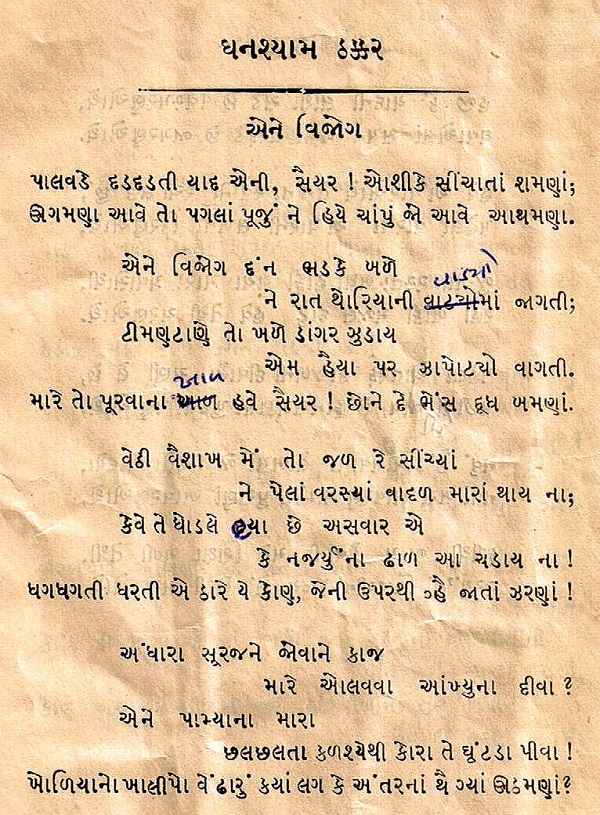 ઘનશ્યામ ઠક્કર
એને વિજોગ
પાલવડે દડદડતી યાદ એની, સૈયર ! ઓશીકે સીંચાતાં શમણાં;
ઊગમણા આવે તો પગલાં પૂજું ને હિયે ચાંપું જો આવે આથમણા.
એને વિજોગ દંન ભડકે બળે
વાડ્યો
ને રાત થોરિયાની વાટયોમાં જાગતી;
ટીમણટાણે તો ખળે ડાંગર ઝુડાય
એમ હૈયા પર ઝાપોટયો વાગતી.
આળ
મારે તો પૂરવાના આળ હવે સૈયર ! છોને દે ભેંસ દૂધ બમણાં.
વેઠી વૈશાખ મેં તો જળ રે સીંચ્યાં
ને પેલાં વરસ્યાં વાદળ મારાં થાય ના;
કેવે તે ઘોડલે હ્યા છે અસવાર એ
કે નજર્યુંના ઢાળ આ ચડાય ના !
ધગધગતી ધરતી એ ઠારે યે કોણ, જેની ઉપરથી વ્હૈ જાતાં ઝરણાં !
અંધારા સૂરજને જોવાને કાજ
મારે ઓલવવા આંખ્યુના દીવા ?
એને પામ્યાના મારા
છલછલતા કળશ્યેથી કોરા તે ઘૂંટડા પીવા !
ખોળિયાનો ખાલીપો વેંઢારું કયાં લગ કે અંતરનાં થૈ ગ્યાં ઊઠમણાં?